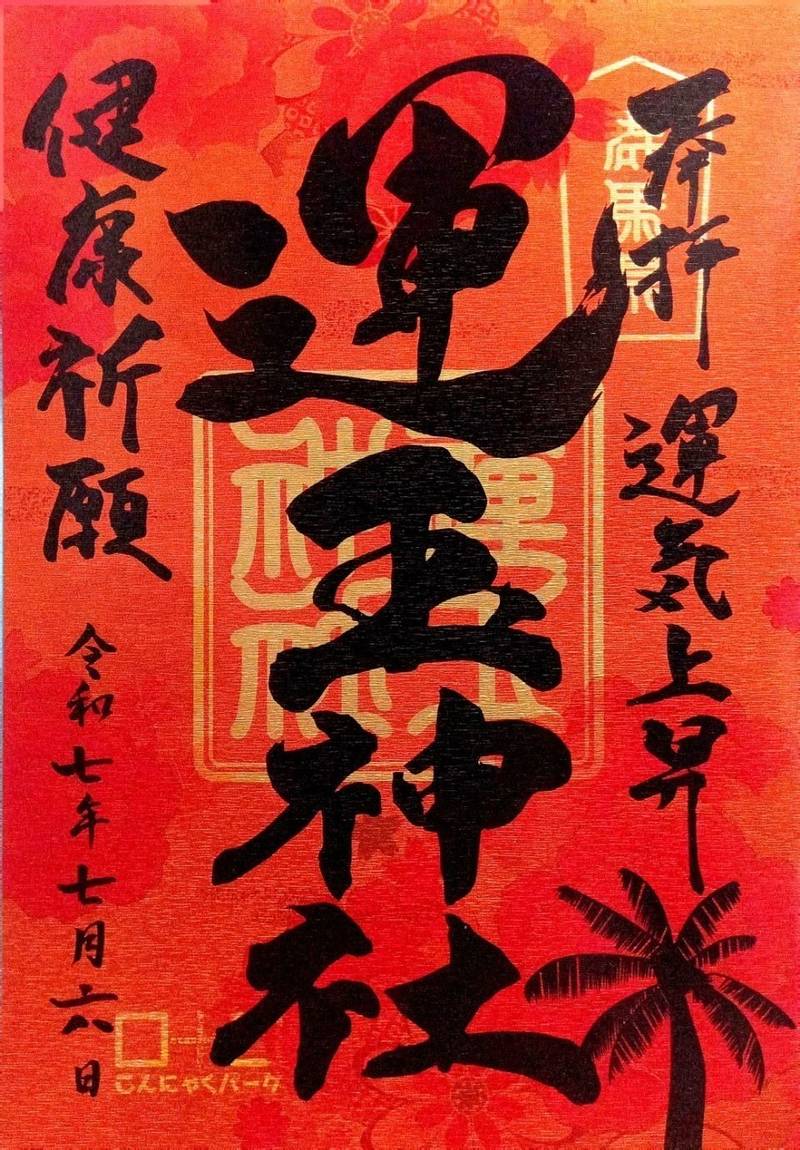 奉拝
運気上昇
運玉神社
健康祈願
令和七年七月六日
こんにゃくパーク